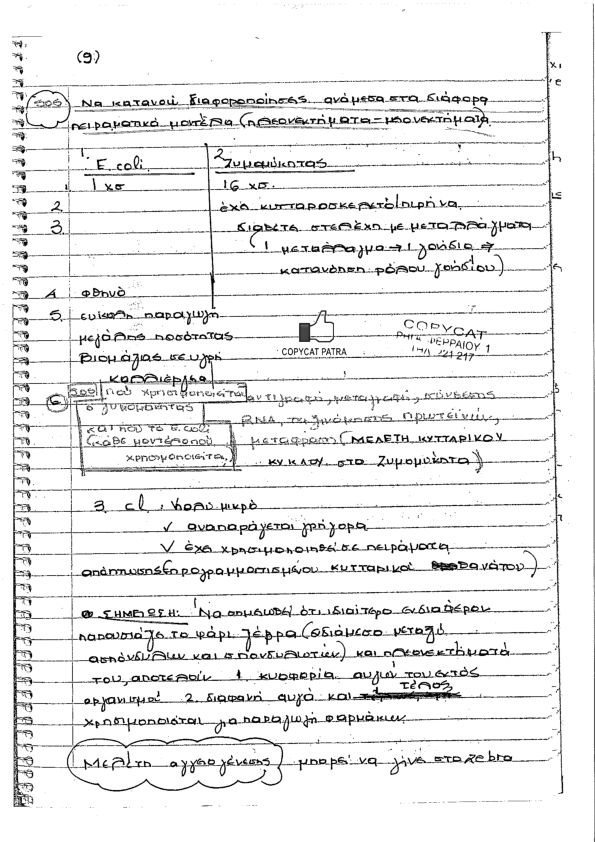 (9)
SOS Να κατανοώ διαφοροποίησεις ανάμεσα στα διάφορα
πειραματικά μοντέλα (πλεονεκτήματα - μειονεκτήματα)
1. E. coli 2. Ζυμομύκητας
1 χσ 16 χσ.
2 έχει κυτταροσκελετό/πυρήνα
3. διαθέτει στελέχη με μεταλλάγματα
(1 μετάλλαγμα → 1 γονίδιο →
κατανόηση ρόλου γονιδίου)
4. φθηνό
5. εύκολη παραγωγή
μεγάλης ποσότητας
βιομάζας σε υγρή
καλλιέργεια
COPYCAT PATRA
COPYCAT
ΡΗΓΑ ΦΕΡΡΑΙΟΥ 1
6 SOS που χρησιμοποιείται αντιγραφή, μεταγραφή, σύνθεσης
ο ζυμομύκητας RNA, ταξινόμησης πρωτεϊνών,
και που το e.coli
(κάθε μοντέλο που μετάφραση (ΜΕΛΕΤΗ ΚΥΤΤΑΡΙΚΟΥ
χρησιμοποιείται) ΚΥΚΛΟΥ στο Ζυμομύκητα)
3. cl, πολύ μικρό
✓ αναπαράγεται γρήγορα
✓ έχει χρησιμοποιηθεί σε πειράματα
απόπτωσης (προγραμματισμένου κυτταρικού θανάτου)
ΣΗΜΕΙΩΣΗ: Να σημειωθεί ότι ιδιαίτερο ενδιαφέρον
παρουσιάζει το ψάρι ζέρρα (ενδιάμεσο μεταξύ
ασπόνδυλων και σπονδυλωτών) και πλεονεκτήματά
του, αποτελούν 1. κυοφορία αυγών του εκτός
οργανισμού 2. διαφανή αυγά και τέλος,
χρησιμοποιείται για παραγωγή φαρμάκων.
Μελέτη αγγειογένεσης μπορεί να γίνει στο zebra